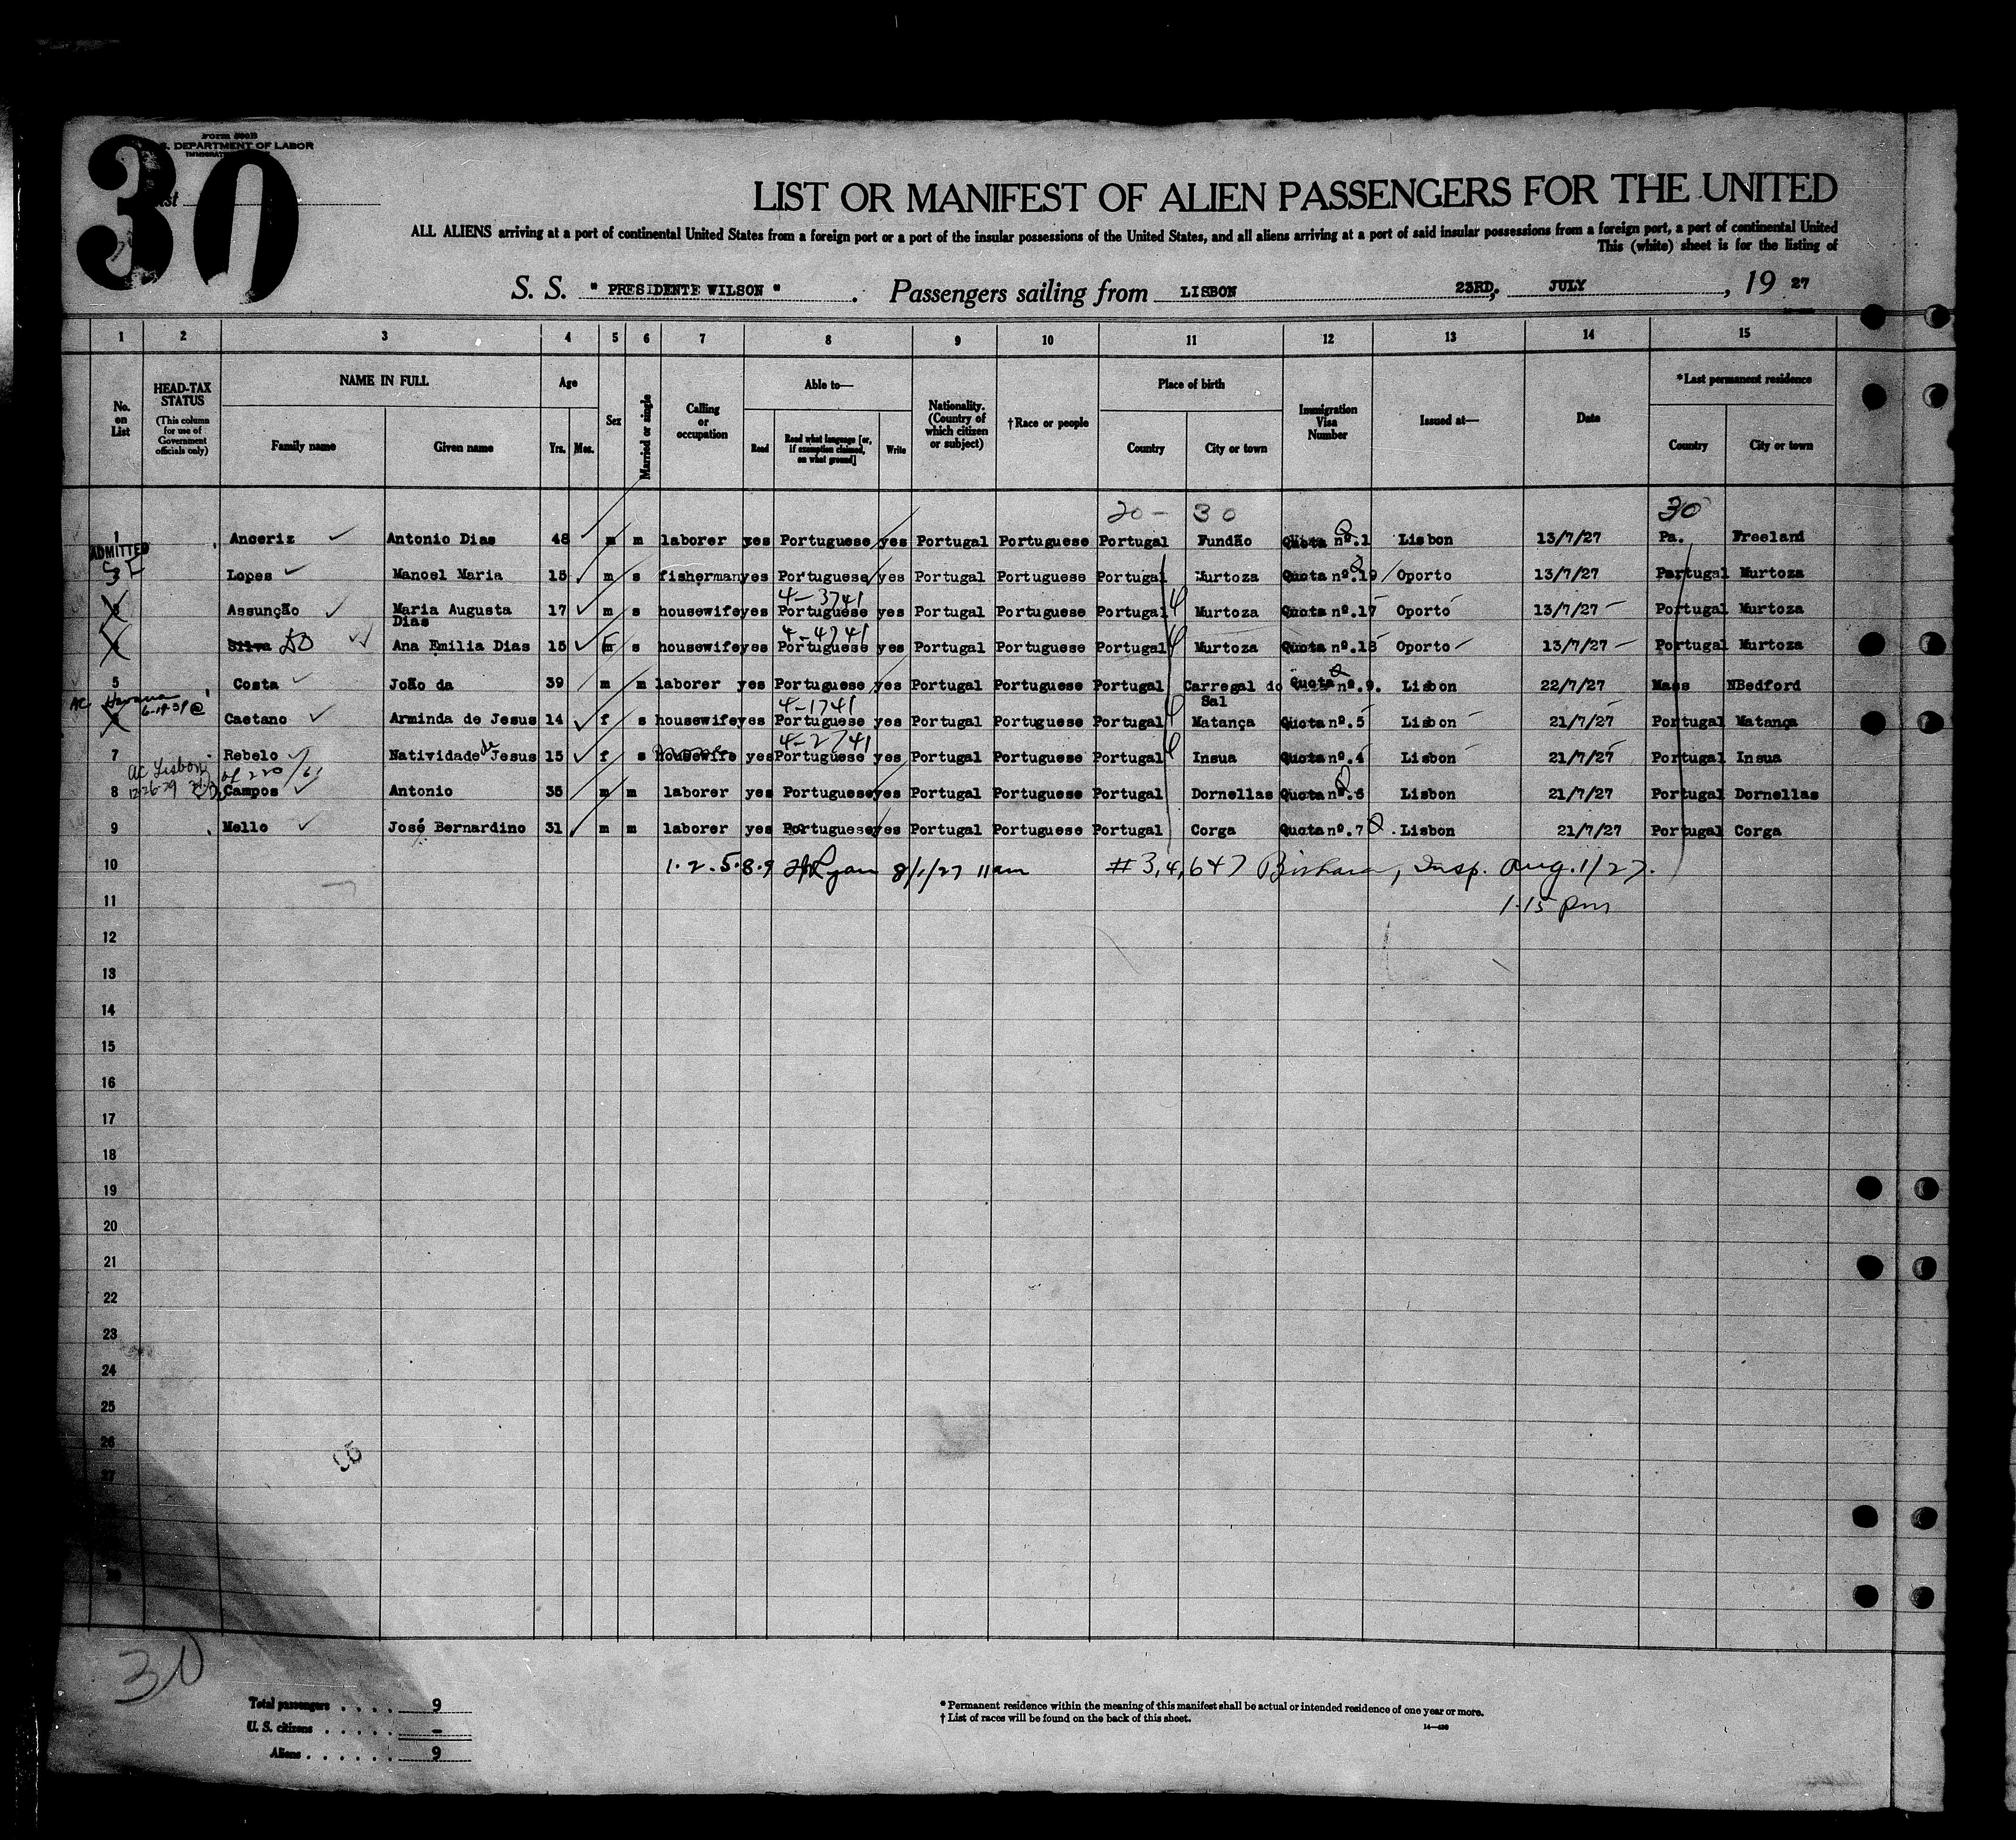 30
Form 500B
S. DEPARTMENT OF LABOR
LIST OR MANIFEST OF ALIEN PASSENGERS FOR THE UNITED
ALL ALIENS arriving at a port of continental United States from a foreign port or a port of the insular possessions of the United States, and all aliens arriving at a port of said insular possessions from a foreign port, a port of continental United
This (white) sheet is for the listing of
S. S. " PRESIDENTE WILSON " . Passengers sailing from LISBON 23RD, JULY , 19 27
1 2 3 4 5 6 7 8 9 10 11 12 13 14 15
No. on List
HEAD-TAX STATUS (This column for use of Government officials only)
NAME IN FULL Family name Given name
Age Yrs. Mos.
Sex
Married or single
Calling or occupation
Able to— Read Read what language [or, if exemption claimed, on what ground] Write
Nationality. (Country of which citizen or subject)
†Race or people
Place of birth Country City or town
Immigration Visa Number
Issued at—
Date
*Last permanent residence Country City or town
20 - 30 30
1 Anceriz Antonio Dias 48 m m laborer yes Portuguese yes Portugal Portuguese Portugal Fundão Quota nº.1 Lisbon 13/7/27 Pa. Freeland
ADMITTED
Lopes Manoel Maria 15 m s fisherman yes Portuguese yes Portugal Portuguese Portugal Murtoza Quota nº.19 Oporto 13/7/27 Portugal Murtoza
4-3741
3 Assunção Maria Augusta Dias 17 m s housewife yes Portuguese yes Portugal Portuguese Portugal Murtoza Quota nº.17 Oporto 13/7/27 Portugal Murtoza
4-4741
4 Silva Ana Emilia Dias 15 f s housewife yes Portuguese yes Portugal Portuguese Portugal Murtoza Quota nº.18 Oporto 13/7/27 Portugal Murtoza
5 Costa João da 39 m m laborer yes Portuguese yes Portugal Portuguese Portugal Carregal do Sal Quota nº.9. Lisbon 22/7/27 Mass NBedford
4-1741
6 Caetano Arminda de Jesus 14 f s housewife yes Portuguese yes Portugal Portuguese Portugal Matança Quota nº.5 Lisbon 21/7/27 Portugal Matança
4-2741
7 Rebelo Natividade de Jesus 15 f s housewife yes Portuguese yes Portugal Portuguese Portugal Insua Quota nº.4 Lisbon 21/7/27 Portugal Insua
AC Lisbon
12-26-29
8 Campos Antonio 35 m m laborer yes Portuguese yes Portugal Portuguese Portugal Dornellas Quota nº.6 Lisbon 21/7/27 Portugal Dornellas
9 Mello José Bernardino 31 m m laborer yes Portuguese yes Portugal Portuguese Portugal Corga Quota nº.7 Lisbon 21/7/27 Portugal Corga
10 1.2.5.8.9 8/1/27 11am # 3,4,6+7 Insp. Aug. 1/27.
11 1.15 pm
12
13
14
15
16
17
18
19
20
21
22
23
24
25
26
27
30
Total passengers . . . . 9
U. S. citizens . . . . . –
Aliens . . . . . . 9
* Permanent residence within the meaning of this manifest shall be actual or intended residence of one year or more.
† List of races will be found on the back of this sheet.